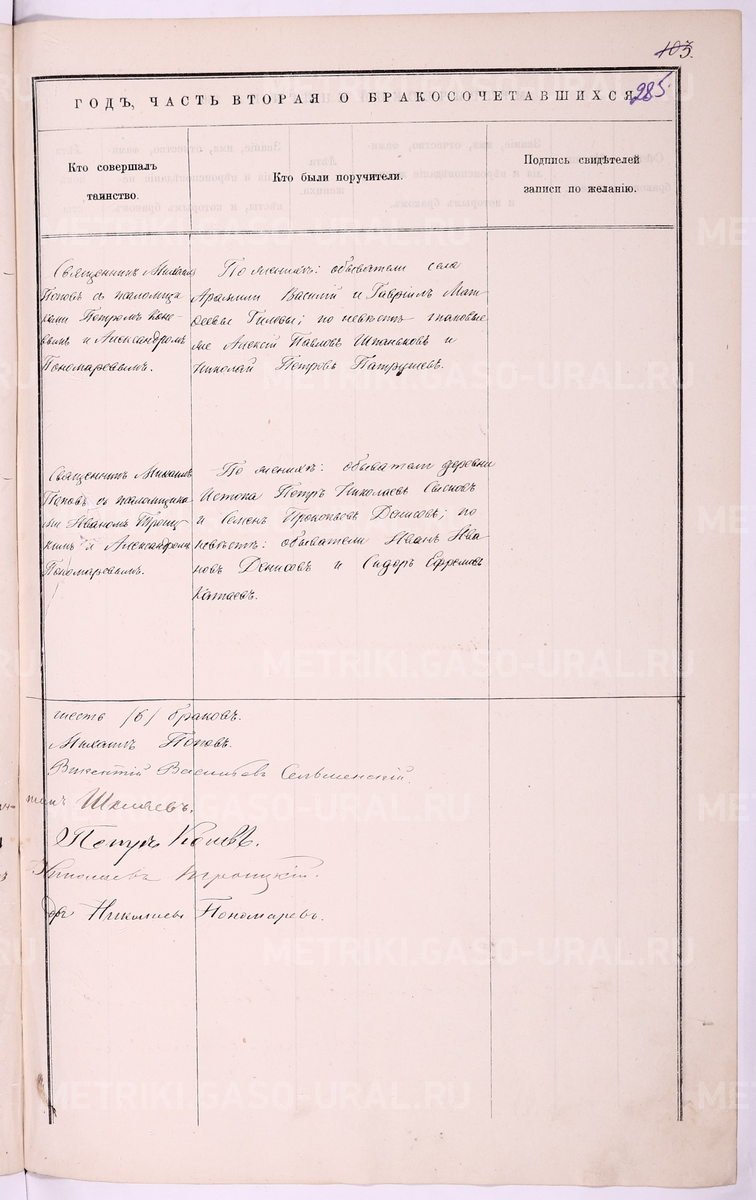 103.
285.
ГОДЪ, ЧАСТЬ ВТОРАЯ О БРАКОСОЧЕТАВШИХСЯ
Кто совершалъ
таинство.
Кто были поручители.
Подпись свидѣтелей
записи по желанію.
Священникъ Михаилъ
Поповъ съ псаломщи-
ками Петромъ
и Александромъ
Пономаревымъ.
По женихѣ: обыватели села
Арамили Василій и Гавріилъ Мат-
ѳеевы Гилевы; по невѣстѣ
Алексѣй Павловъ Шпаньковъ и
Николай Петровъ Патрушевъ.
Священникъ Михаилъ
Поповъ съ псаломщика-
ми Иваномъ Троиц-
кимъ и Александромъ
Пономаревымъ.
По женихѣ: обыватели деревни
Истока Петръ Николаевъ
и Семенъ Прокопьевъ Денисовъ; по
невѣстѣ: обыватели Иванъ Ива-
новъ Денисовъ и Сидоръ Ефремовъ
Катаевъ.
шесть /6/ браковъ.
Михаилъ Поповъ.
Викентій Васильевъ Сельменскій.
Шаляевъ.
Петръ
Николаевъ Троицкій.
Николаевъ Пономаревъ.
METRIKI.GASO-URAL.RU